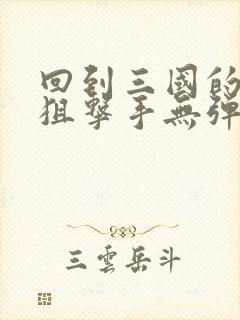 回到三國的
狙擊手無彈
三雲岳斗